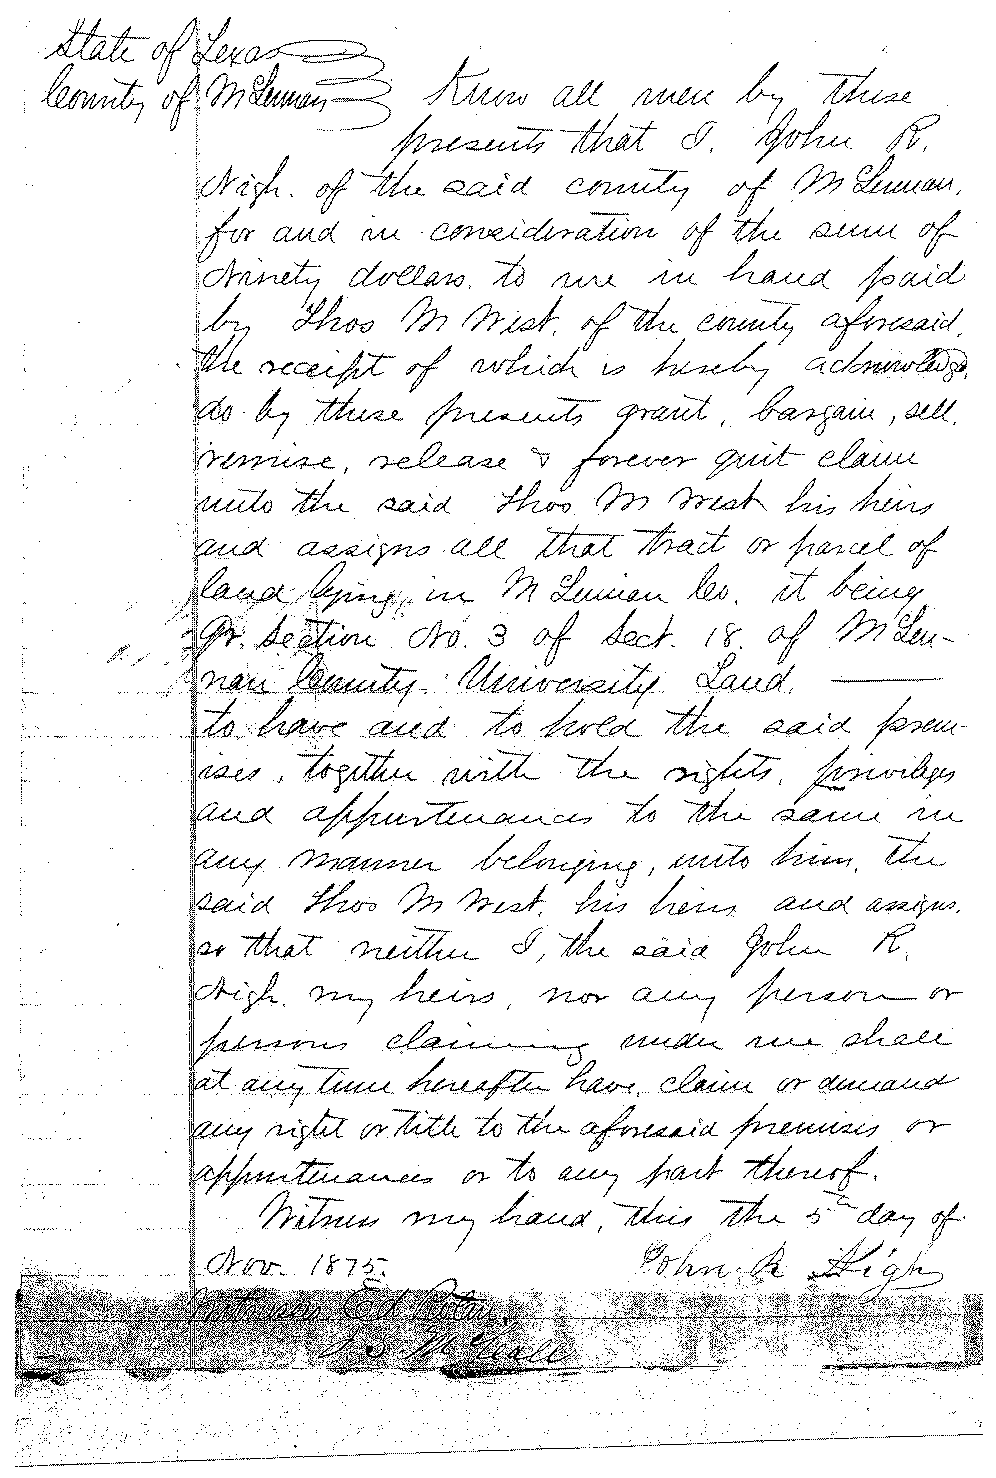 State of Texas
County of McLennan Know all men by these
presents that I, John R.
Nigh. of the said county of McLennan,
for and in consideration of the sum of
Ninety dollars. to me in hand paid
by Thos M West, of the county aforesaid,
the receipt of which is hereby acknowledgd,
do by these presents grant, bargain, sell,
remise, release & forever quit claim
unto the said Thos M West his heirs
and assigns all that tract or parcel of
land lying in McLennan Co. it being
Qr. Section No. 3 of Sect. 18 of McLen-
nan County University Land.
to have and to hold the said prem-
ises, together with the rights, privileges
and appurtenances to the same in
any manner belonging, unto him, the
said Thos M West, his heirs and assigns.
so that neither I, the said John R.
Nigh. my heirs, nor any person or
persons claiming under me shall
at any time hereafter have, claim or demand
any right or title to the aforesaid premises or
appurtenances or to any part thereof.
Witness my hand, this the 5th day of
Nov. 1875. John R Nigh
Ed
J S